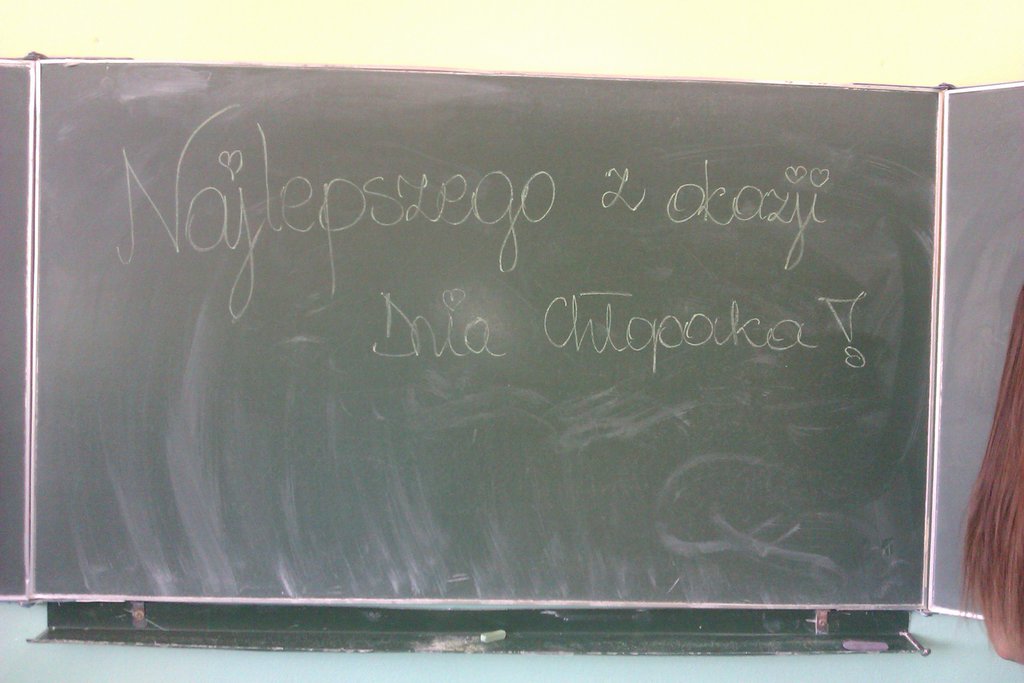 Najlepszego z okazji
Dnia Chłopaka!